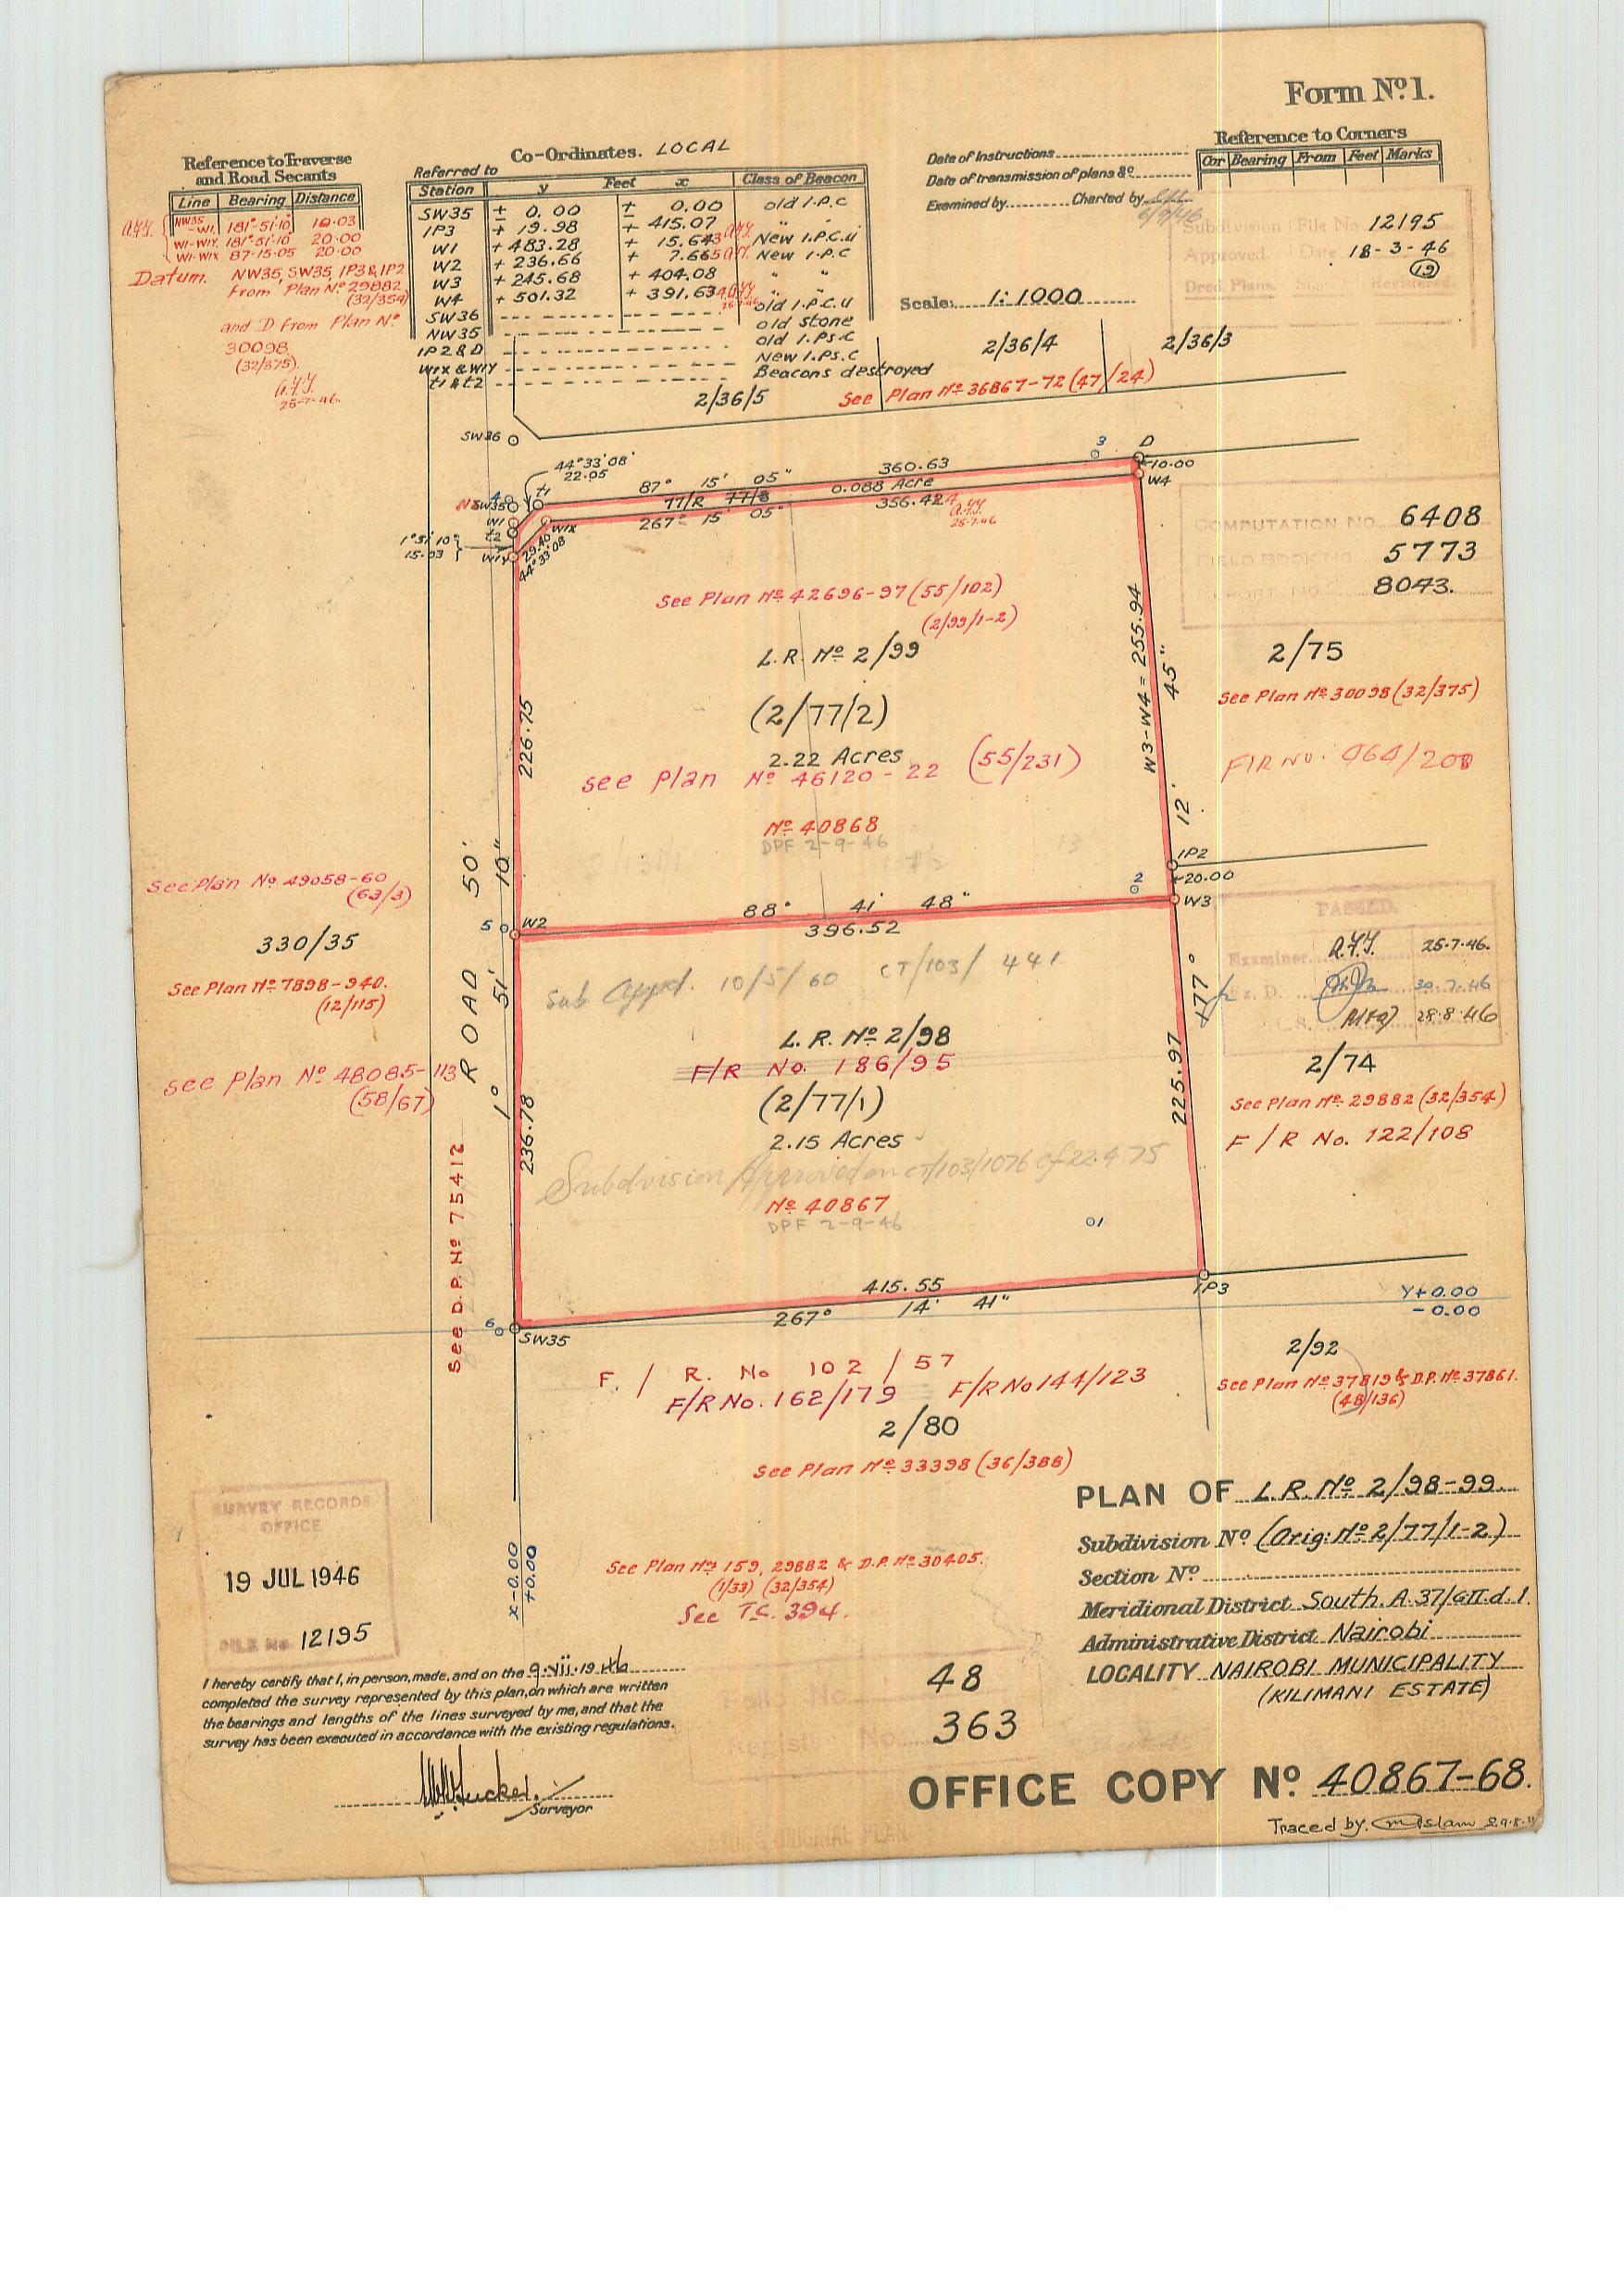 Form No. 1.
Reference to Traverse
and Road Secants
Line Bearing Distance
NW35-W1. 181°-51'-10" 10.03
W1-W1Y. 181°-51'-10 20.00
W1-W1X 87-15-05 20.00
Datum. NW35, SW35, IP3 & IP2
From Plan No. 29882
(32/354)
and D from Plan No.
30098
(32/375).
25-7-46.
Co-Ordinates. LOCAL
Referred to
Station y Feet x Class of Beacon
SW35 ± 0.00 ± 0.00 old I.P.C
IP3 + 19.98 + 415.07 " "
W1 + 483.28 + 15.643 New I.P.C.U
W2 + 236.66 + 7.665 New I.P.C
W3 + 245.68 + 404.08 " "
W4 + 501.32 + 391.634 " "
SW36 old I.P.C.U
NW35 old stone
IP2 & D old I.Ps.C
W1X & W1Y New I.Ps.C
t1 & t2 Beacons destroyed
Date of Instructions
Date of transmission of plans &c
Examined by Charted by
6/9/46
Scale: 1:1000
Reference to Corners
Cor Bearing From Feet Marks
Subdivision File No. 12195
Approved. Date 18-3-46
(19)
Deed Plans. Registered.
2/36/4
2/36/3
2/36/5
See Plan No. 36867-72 (47/24)
SW36
44°33'08"
22.05
87° 15' 05"
360.63
3
D
10.00
W4
77/R
0.088 Acre
356.424
25-7-46
267° 15' 05"
4
t1
W1
t2
W1X
W1Y
1°51'10"
15.03
29.40
44°33'08
COMPUTATION NO. 6408
FIELD BOOK NO. 5773
REPORT NO. 8043.
See Plan No. 42696-97 (55/102)
(2/99/1-2)
L.R. No. 2/99
(2/77/2)
2.22 Acres
See Plan No. 46120-22 (55/231)
No. 40868
DPF 2-9-46
226.75
W3-W4 = 255.94
177° 12' 45"
2/75
See Plan No. 30098 (32/375)
F/R NO. 464/208
See Plan No. 49058-60
(63/3)
330/35
See Plan No. 7898-940.
(12/115)
See Plan No. 48085-113
(58/67)
ROAD 50'
1° 51' 10"
5
W2
88° 41' 48"
396.52
2
IP2
20.00
W3
PASSED.
Examiner 25-7-46.
Ex. D. 30-7-46
28-8-46
Sub Appd. 10/5/60 CT/103/441
L.R. No. 2/98
F/R No. 186/95
(2/77/1)
2.15 Acres
Subdivision Approved on CT/103/1076 of 22.4.75
No. 40867
DPF 2-9-46
1
236.78
225.97
2/74
See Plan No. 29882 (32/354)
F/R No. 122/108
See D.P. No 75412
415.55
267° 14' 41"
6
SW35
IP3
Y+0.00
-0.00
2/92
See Plan No. 37819 & D.P. No. 37861.
(48/136)
F./R. No 102/57
F/R No. 162/179 F/R No 144/123
2/80
See Plan No. 33398 (36/388)
See Plan Nos. 159, 29882 & D.P. No. 30405.
(1/33) (32/354)
See T.C. 394.
x-0.00
+0.00
SURVEY RECORDS
OFFICE
19 JUL 1946
FILE No 12195
I hereby certify that I, in person, made, and on the 9.vii.1946
completed the survey represented by this plan, on which are written
the bearings and lengths of the lines surveyed by me, and that the
survey has been executed in accordance with the existing regulations.
Surveyor
No. 48
Regist No. 363
PLAN OF L.R. No. 2/98-99.
Subdivision No. (Orig: No. 2/77/1-2)
Section No.
Meridional District South. A.37/GII.d.1.
Administrative District Nairobi
LOCALITY NAIROBI MUNICIPALITY
(KILIMANI ESTATE)
OFFICE COPY No. 40867-68.
Traced by. Islam